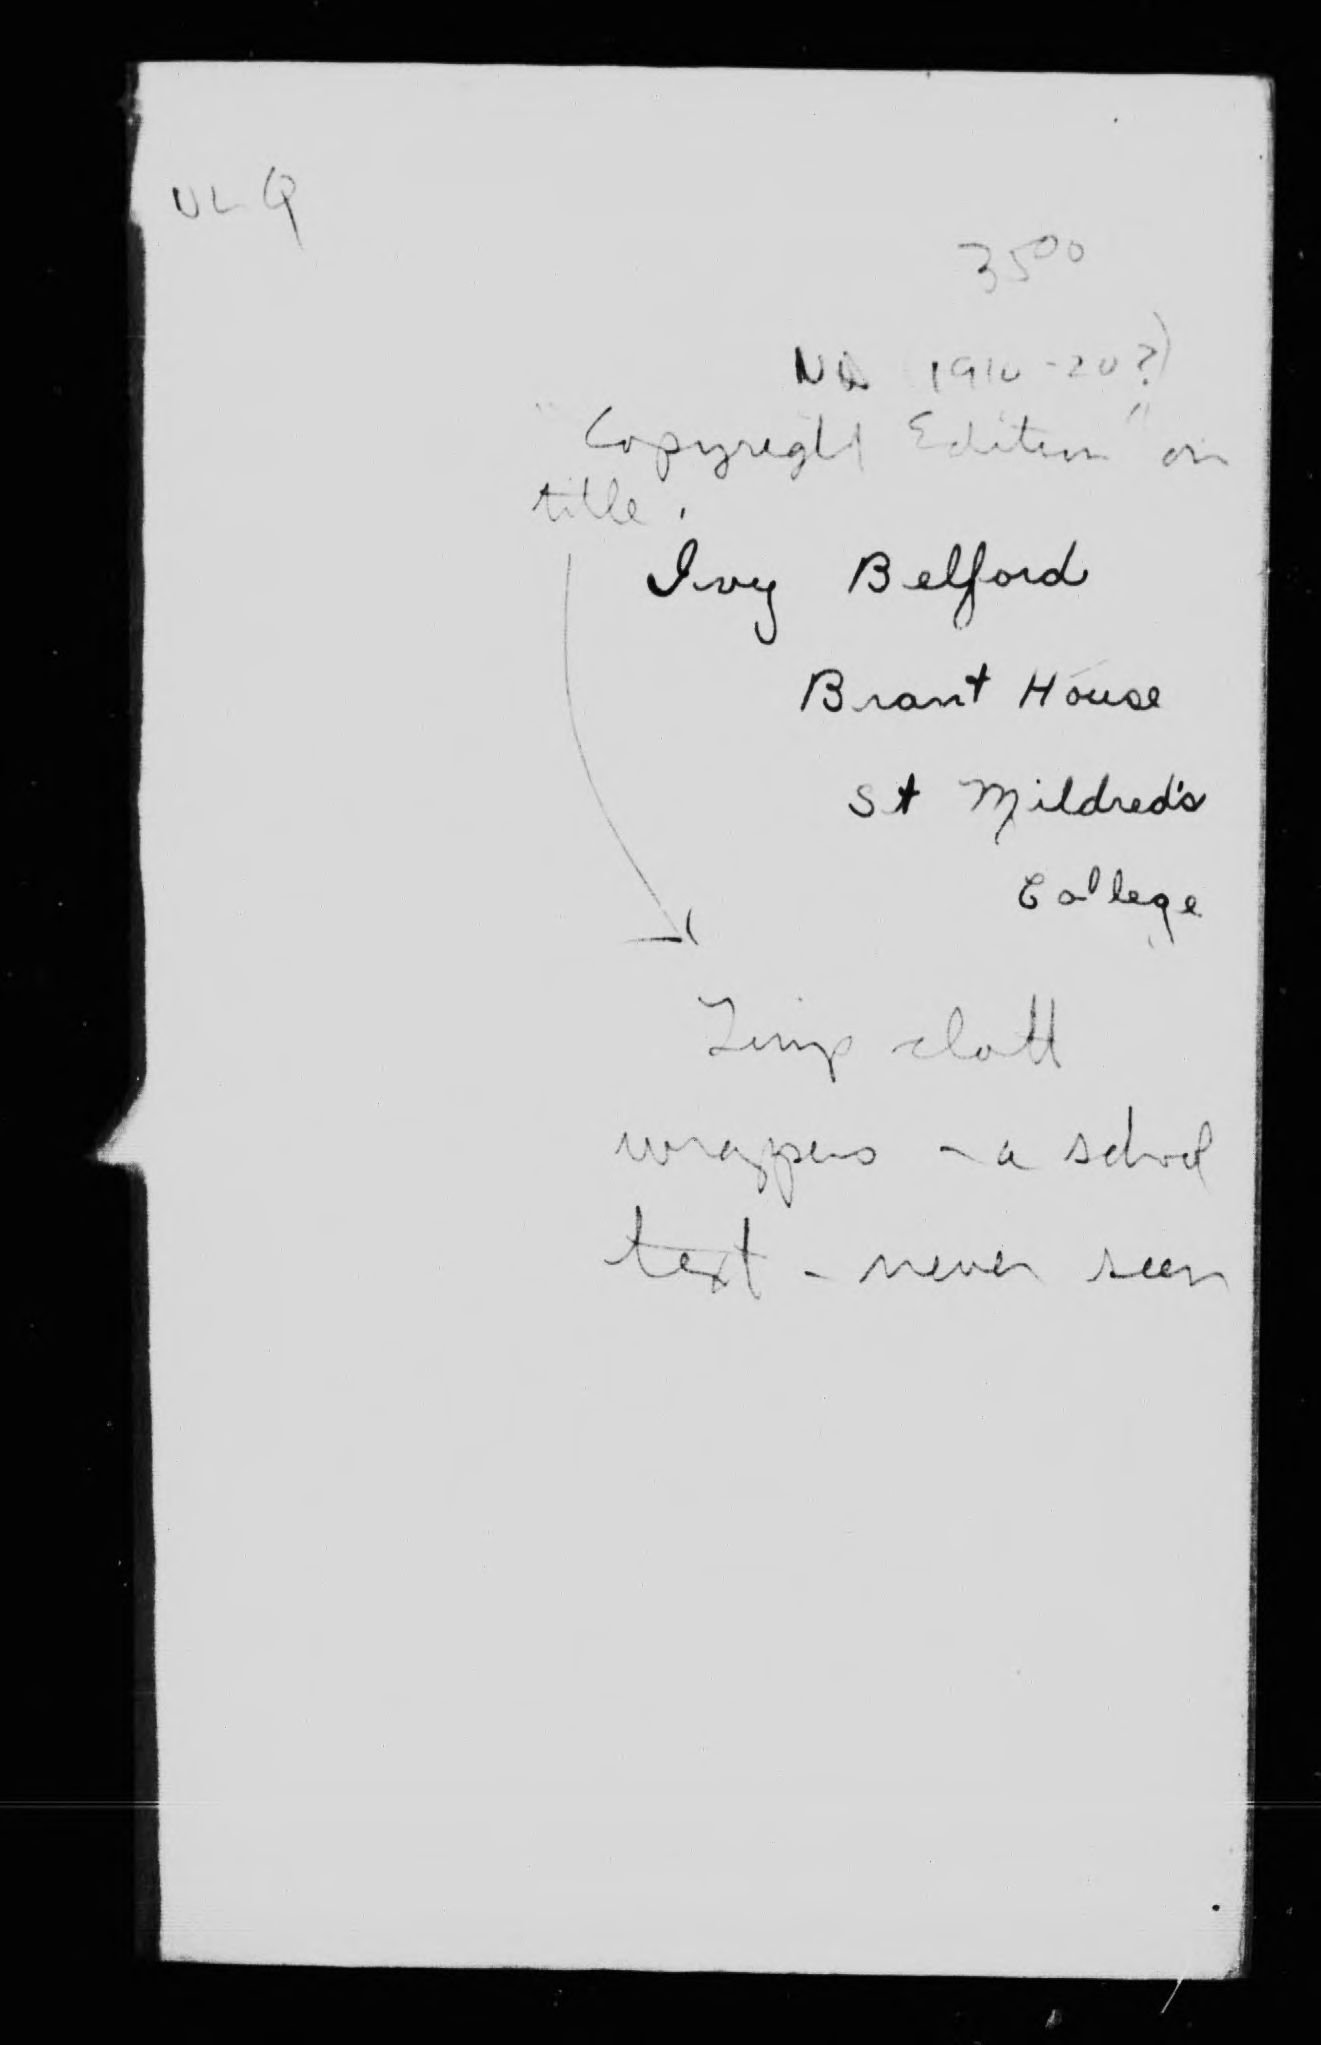 ULQ
35⁰⁰
ND (1910-20?)
"Copyright Edition" on
title.
Ivy Belford
Brant House
St Mildred's
College
Limp cloth
wrappers - a school
text - never seen